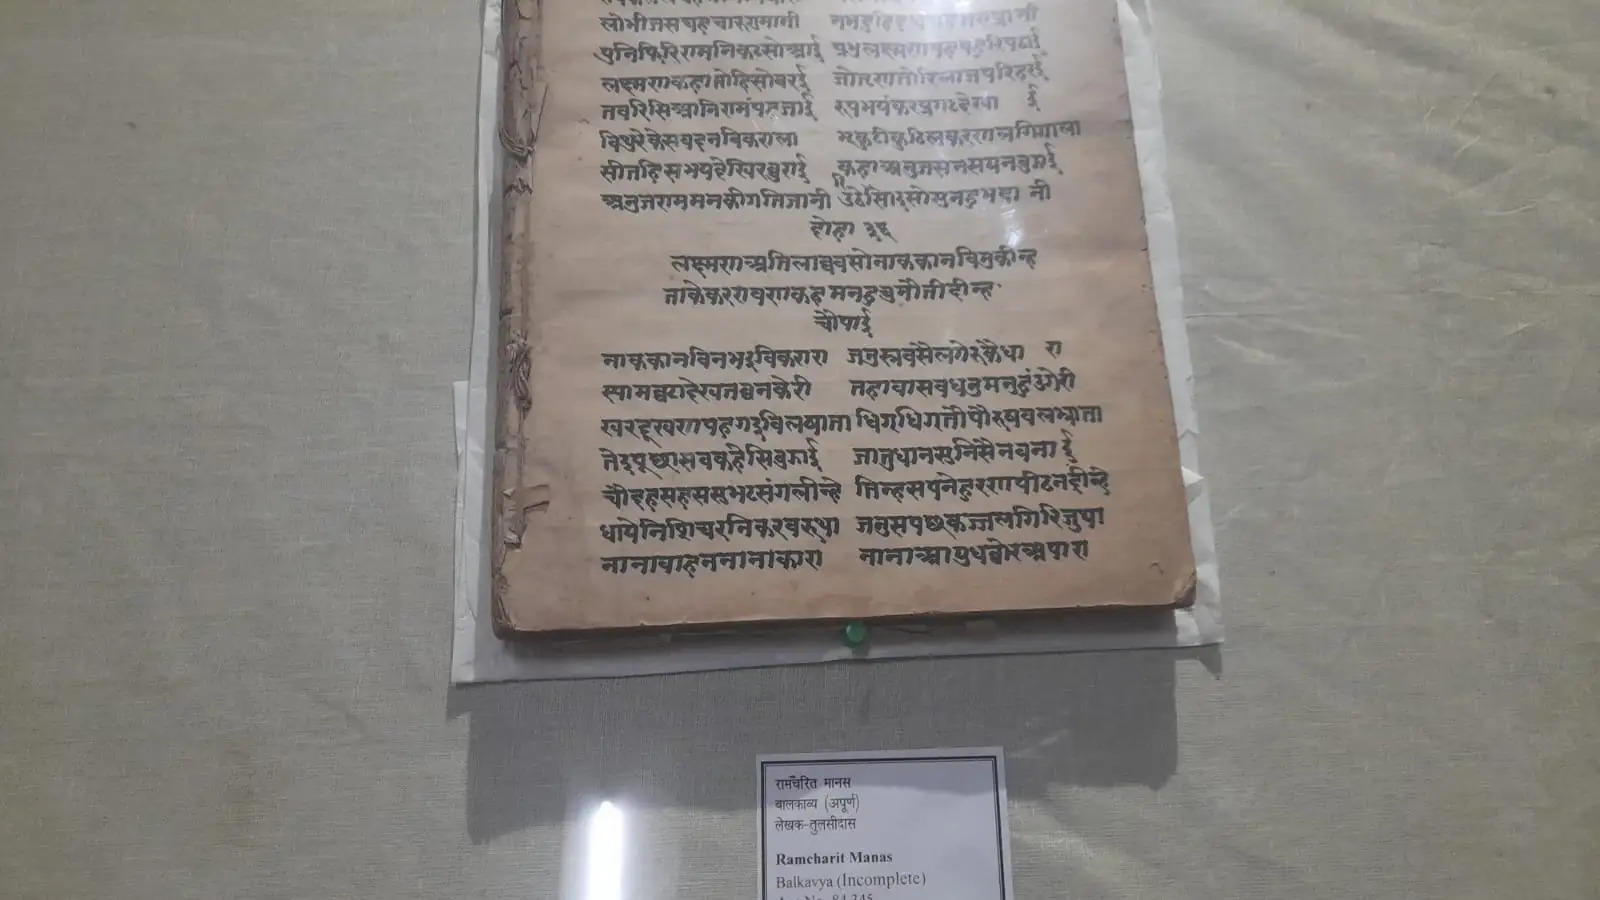 लोभीजसचहचारगुमानी नभदुहिदूधचहतएप्रानी
पुनिफिरिरामनिकटसोआई प्रभुलछमणपहबहुरिपठाई
लछमणकहातोहिसोबरई जोतृणतोरिलाजपरिहरई
तवरिसिआनिरामंपहजाई रुपभयंकरप्रगटदेखा ई
विथुरेकेसवदनविकराला भ्रकुटीकुटिलकरणलगिगाला
सीतहिसभयदेखिरघुराई कहाअनुजसनसयनबुझाई
अनुजराममनकीगतिजानी उठेरिसाइसोसुनहुभवा नी
दोहा ३६
लछमणअतिलाघवसोनाककानविनुकीन्ह
ताकेकररावणकहमनहुचुनौतीदीन्ह
चौपाई
नाककानविनभइविकरारा जनुस्रवसैलगेरुकैधा रा
स्यामघटादेखतघनकेरी तहावासवधनुमनहुंउगेरी
खरदूखणपहगइविलपाता धिगधिगतौपौरुषवलभ्राता
तेइपूछासवकहेसिबुझाई जातुधानसुनिसैनबना ई
चौदहसहससुभटसंगलीन्हे तिन्हसपनेहुरणपीठनदीन्हे
धायेनिशिचरनिकरवरुथा जनुसपछकज्जलगिरिजुथा
नानावाहननानाकारा नानाआयुधघोरअपारा
रामचरित मानस
बालकाव्य (अपूर्ण)
लेखक-तुलसीदास
Ramcharit Manas
Balkavya (Incomplete)
Acc No. 84.345